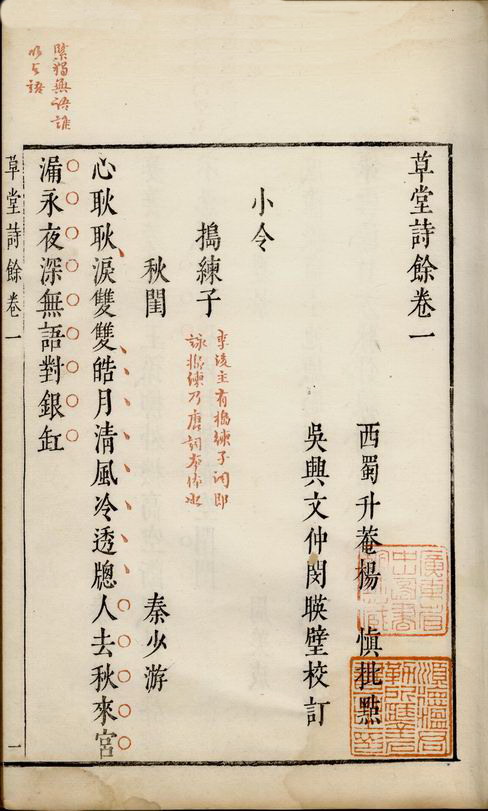 草堂詩餘卷一
西蜀升菴楊 慎批點
吳興文仲閔暎璧校訂
小令
搗練子
李後主有搗練子詞即
詠搗練乃唐詞本體也
秋閨 秦少游
心耿耿淚雙雙皓月清風冷透牕人去秋來宮
漏永夜深無語對銀缸
草堂詩餘卷一
一